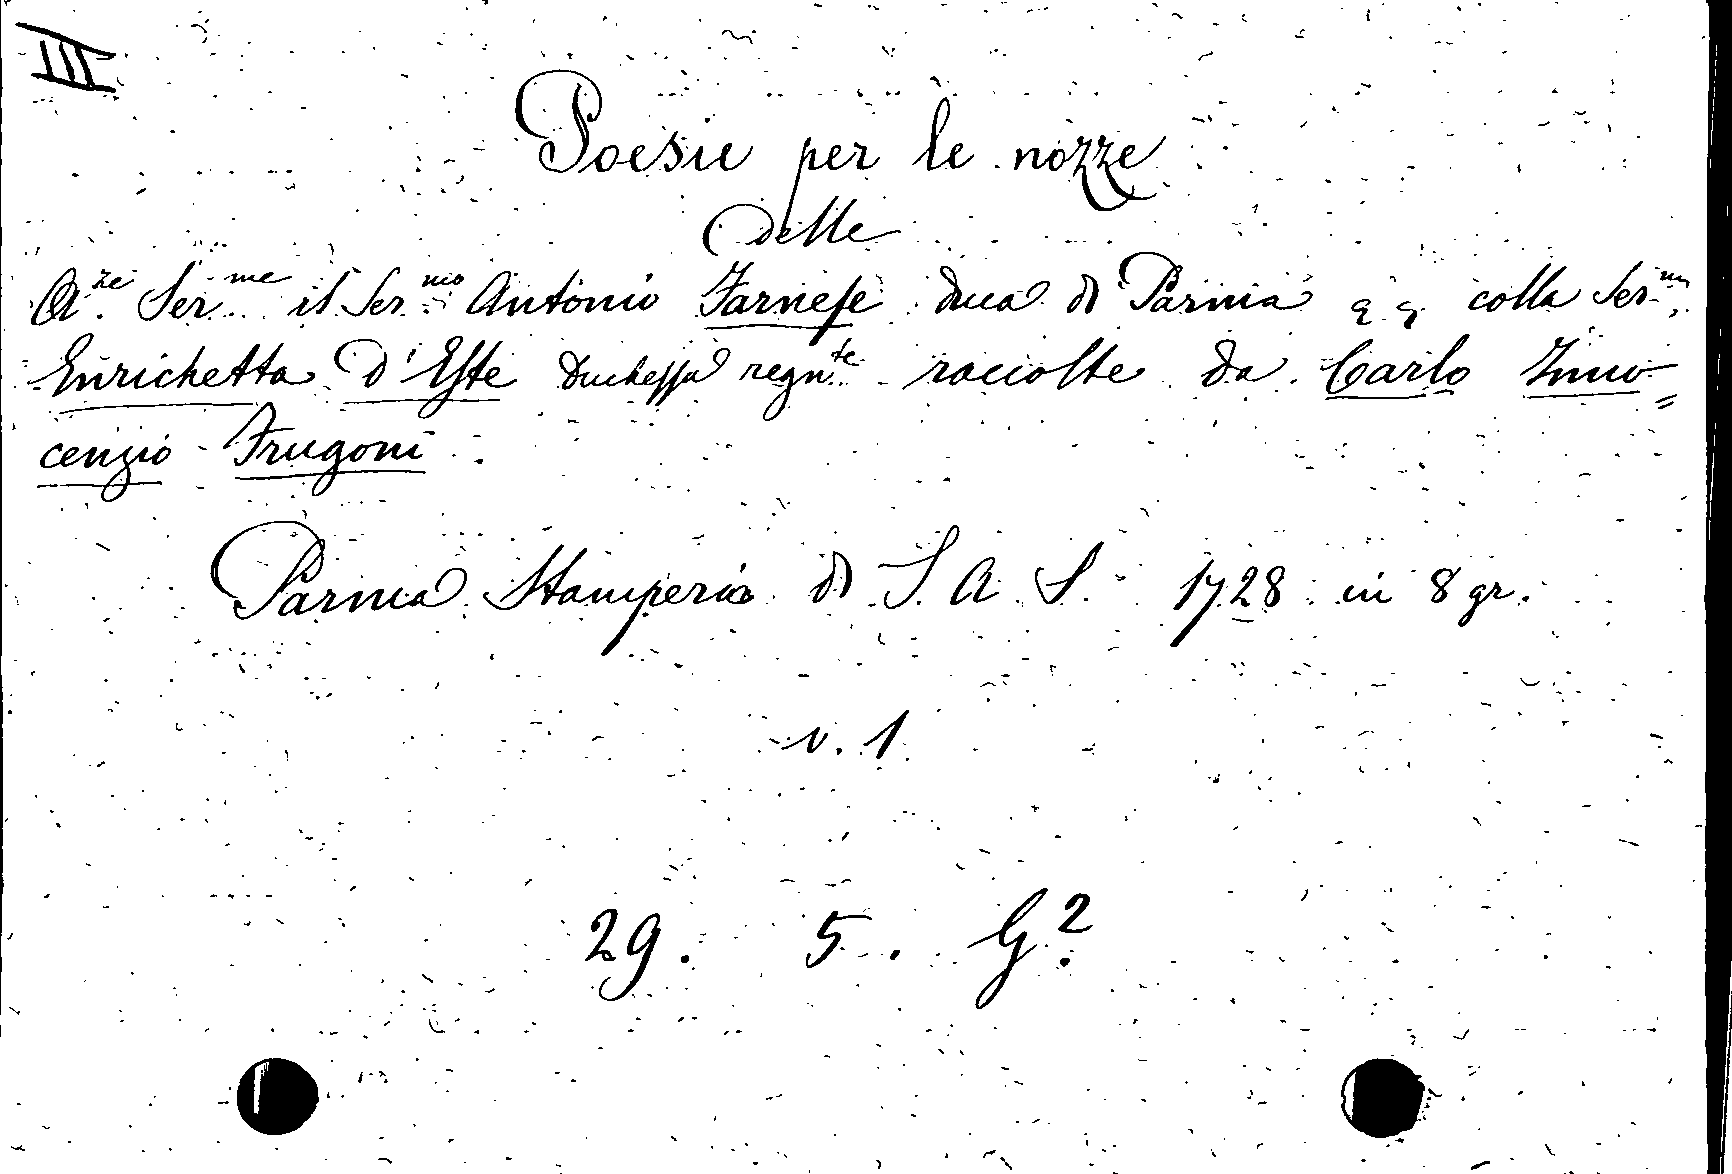 III
Poesie per le nozze
delle
A.ze Ser.me il Ser.mo Antonio Farnese duca di Parma & & colla Ser.ma
Enrichetta d'Este duchessa regn.te raccolte da Carlo Inno=
cenzio Frugoni
Parma Stamperia di S. A. S. 1728 in 8 gr.
v. 1
29. 5. G.2